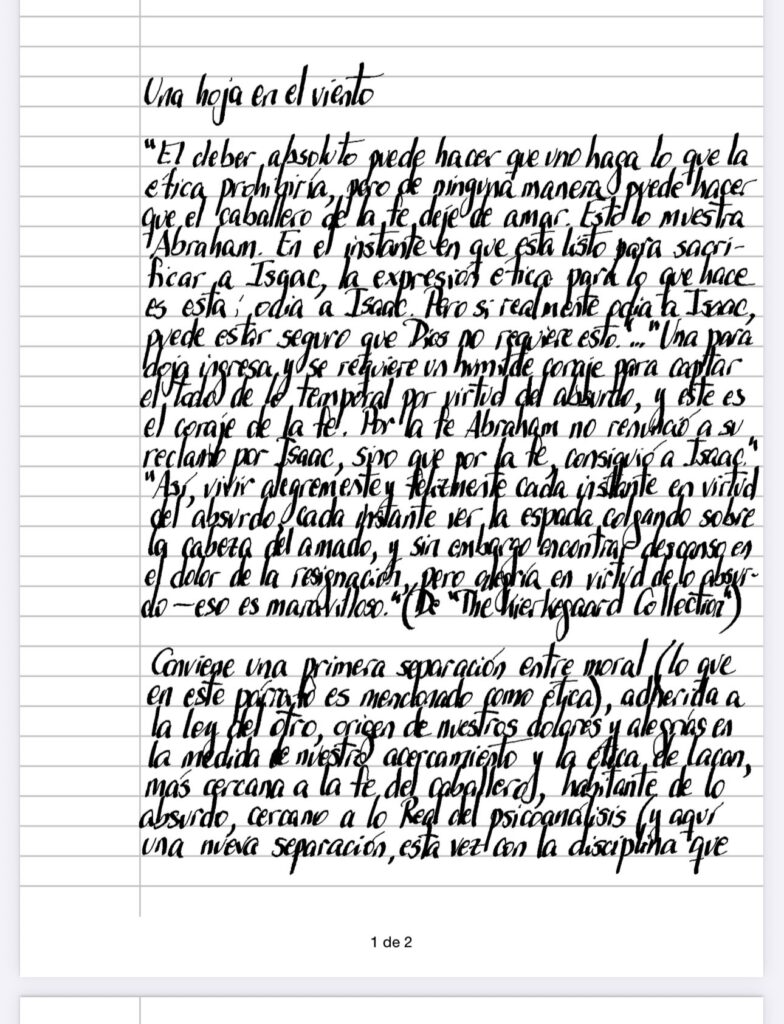 Una hoja en el viento
"El deber absoluto puede hacer que uno haga lo que la
ética prohibiría, pero de ninguna manera puede hacer
que el caballero de la fe deje de amar. Esto lo muestra
Abraham. En el instante en que está listo para sacri-
ficar a Isaac, la expresión ética para lo que hace
es esta: odia a Isaac. Pero si realmente odia a Isaac,
puede estar seguro que Dios no requiere esto."..."Una para
doja ingresa, y se requiere un humilde coraje para captar
el todo de lo temporal por virtud del absurdo, y este es
el coraje de la fe. Por la fe Abraham no renunció a su
reclamo por Isaac, sino que por la fe, consiguió a Isaac."
"Así, vivir alegremente y felizmente cada instante en virtud
del absurdo, cada instante ver la espada colgando sobre
la cabeza del amado, y sin embargo encontrar descanso en
el dolor de la resignación, pero alegría en virtud de lo absur-
do — eso es maravilloso." (De "The Kierkegaard Collection")
Conviene una primera separación entre moral (lo que
en este párrafo es mencionado como ética), adherida a
la ley del otro, origen de nuestros dolores y alegrías en
la medida de nuestro acercamiento y la ética de Lacan,
más cercana a la fe del caballero, habitante de lo
absurdo, cercano a lo Real del psicoanálisis (y aquí
una nueva separación, esta vez con la disciplina que
1 de 2